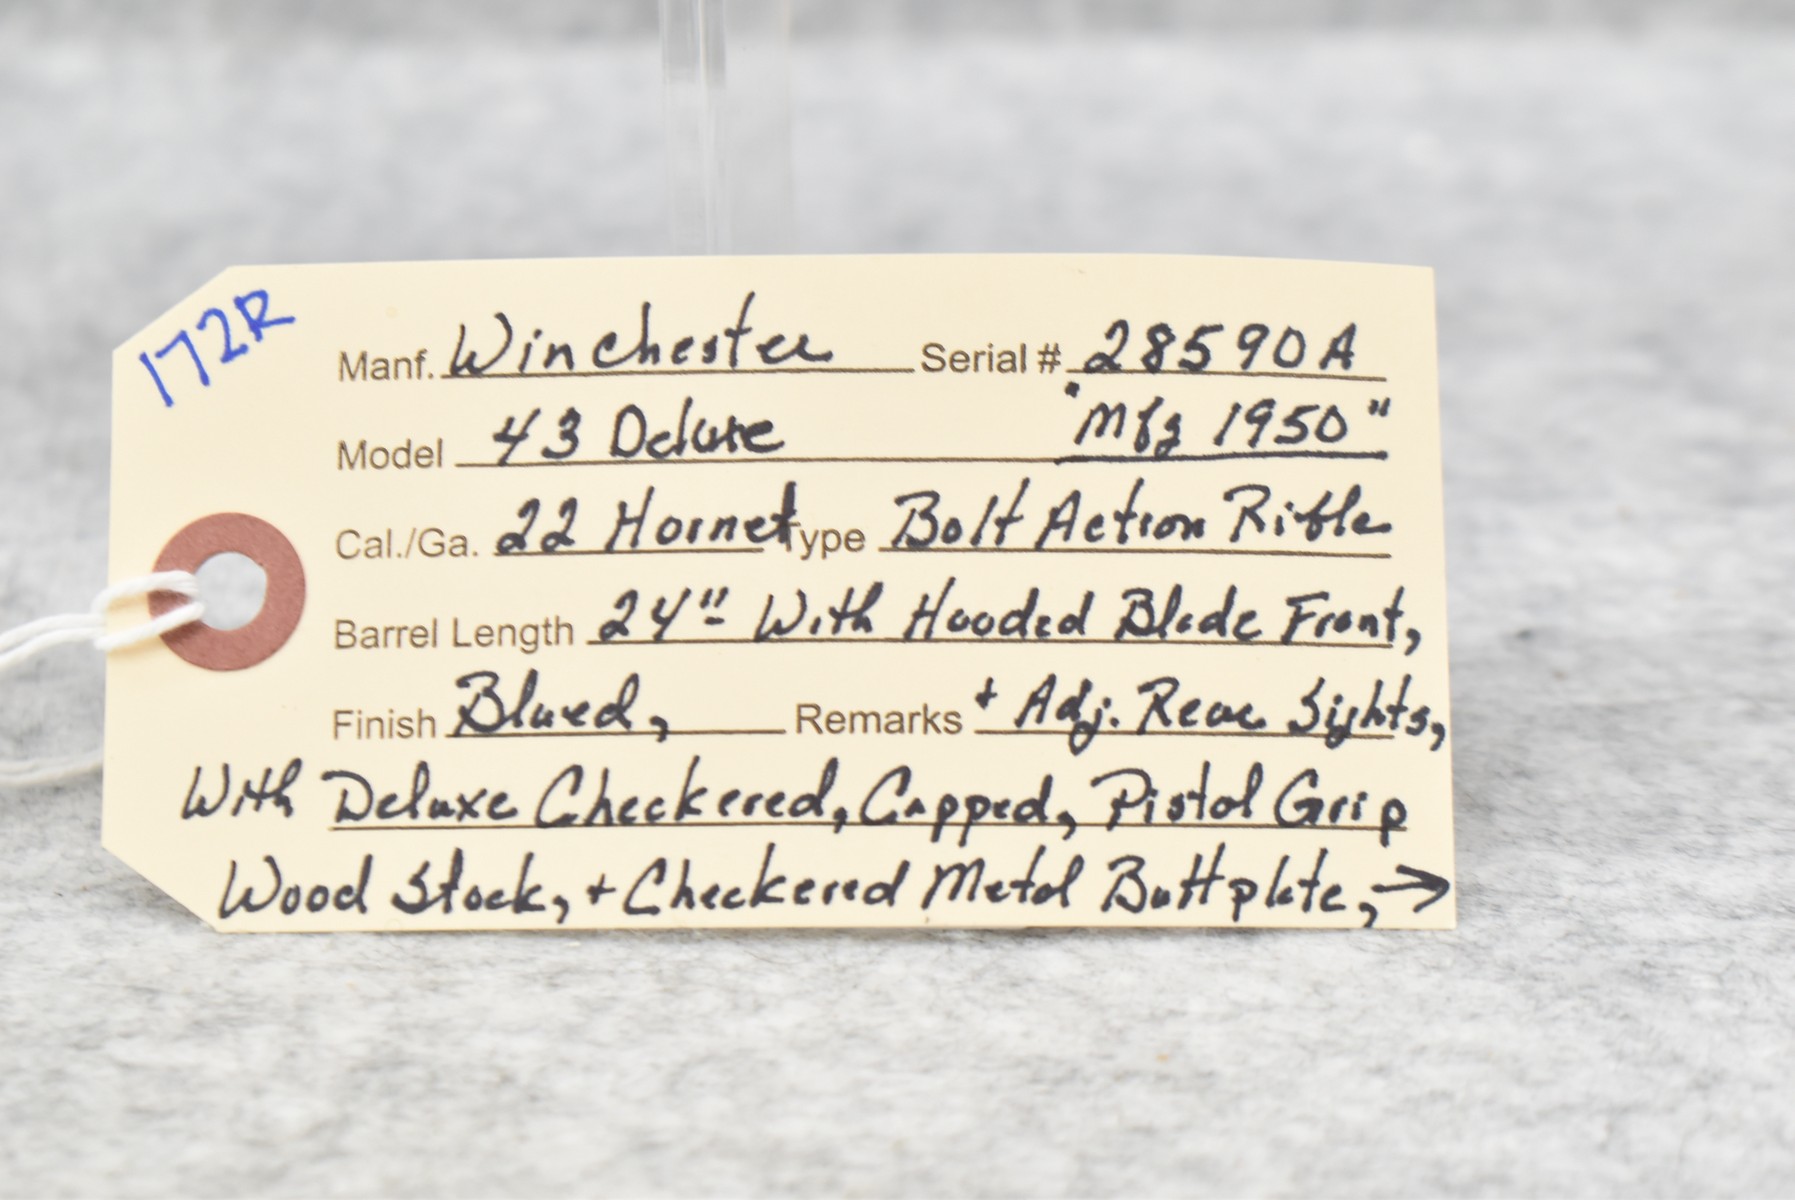 172R
Manf. Winchester Serial # 28590A
Model 43 Deluxe "Mfg 1950"
Cal./Ga. 22 Hornet Type Bolt Action Rifle
Barrel Length 24" With Hooded Blade Front,
Finish Blued, Remarks + Adj. Rear Sights,
With Deluxe Checkered, Capped, Pistol Grip
Wood Stock, + Checkered Metal Buttplate, →